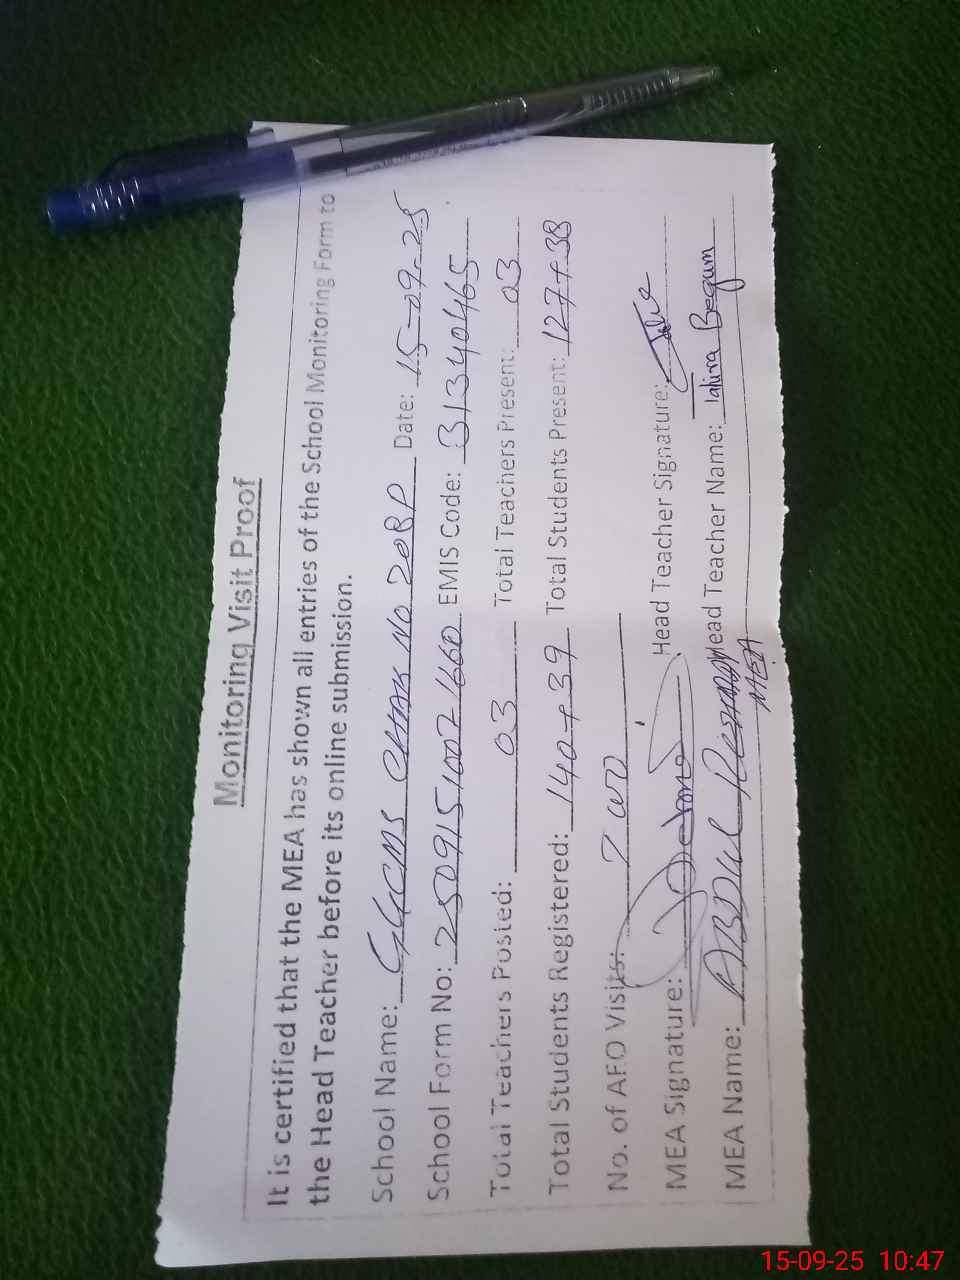 Monitoring Visit Proof
It is certified that the MEA has shown all entries of the School Monitoring Form to
the Head Teacher before its online submission.
School Name: GGCMS CHAK NO 20BP Date: 15-09-25
School Form No: 25091510021660 EMIS Code: 31340465
Total Teachers Posted: 03 Total Teachers Present: 03
Total Students Registered: 140+39 Total Students Present: 127+38
No. of AEO Visits: Two
MEA Signature: Head Teacher Signature:
MEA Name: ABDUL Head Teacher Name: Begum
MEA
15-09-25 10:47